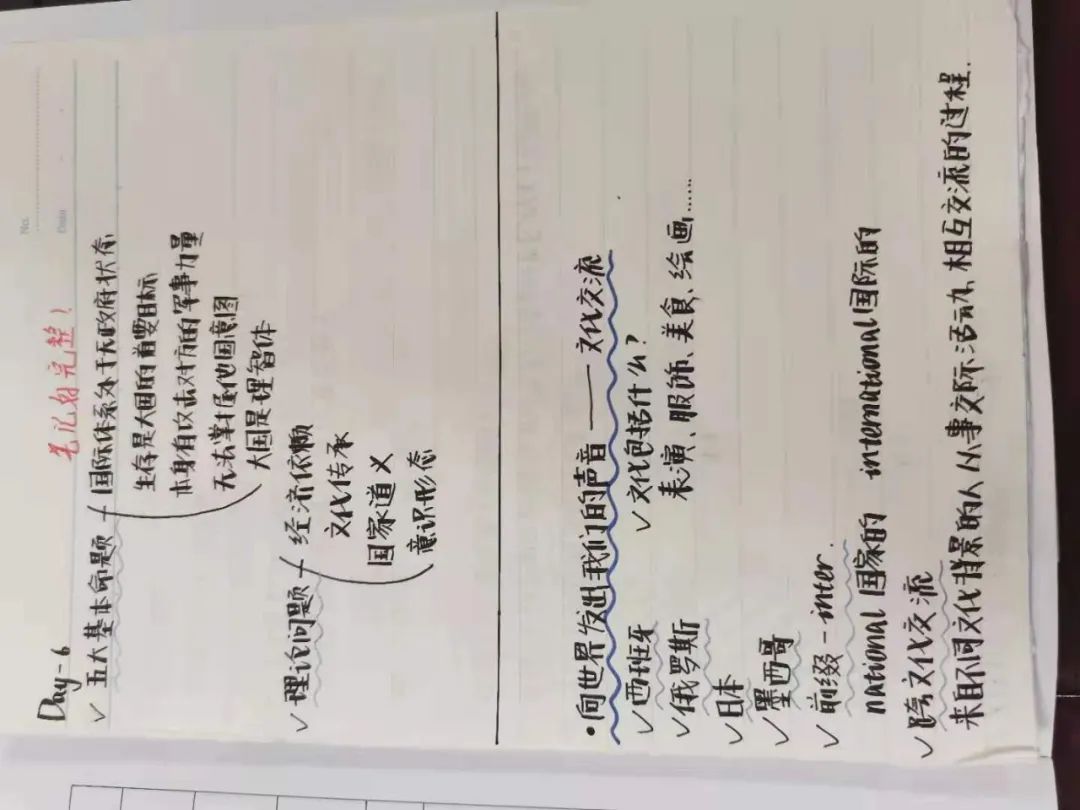 No.
Date
Day-6
笔记超完整！
✓ 五大基本命题 - 国际体系处于无政府状态
生存是大国的首要目标
本身有攻击对方的军事力量
无法掌握他国意图
大国是理智体
✓ 理论问题 - 经济依赖
文化传承
国家道义
意识形态
• 向世界发出我们的声音——文化交流
✓ 西班牙 ✓ 文化包括什么？
✓ 俄罗斯 表演、服饰、美食、绘画……
✓ 日本
✓ 墨西哥
✓ 前缀-inter.
national 国家的 international 国际的
✓ 跨文化交流
来自不同文化背景的人从事交际活动，相互交流的过程.